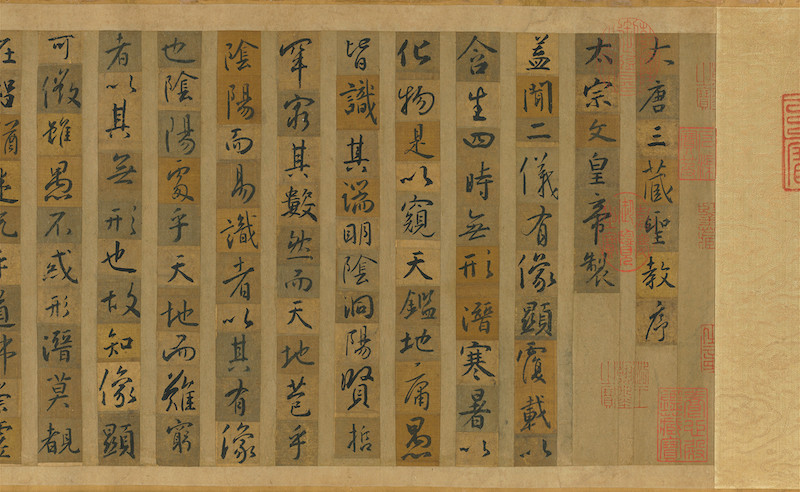 大唐三藏聖教序
太宗文皇帝製
盖聞二儀有像顯覆載以
含生四時無形潛寒暑以
化物是以窺天鑑地庸愚
皆識其端明陰洞陽賢哲
罕窮其數然而天地苞乎
陰陽而易識者以其有像
也陰陽處乎天地而難窮
者以其無形也故知像顯
可徵雖愚不惑形潛莫覩
在智猶迷況乎道崇虛